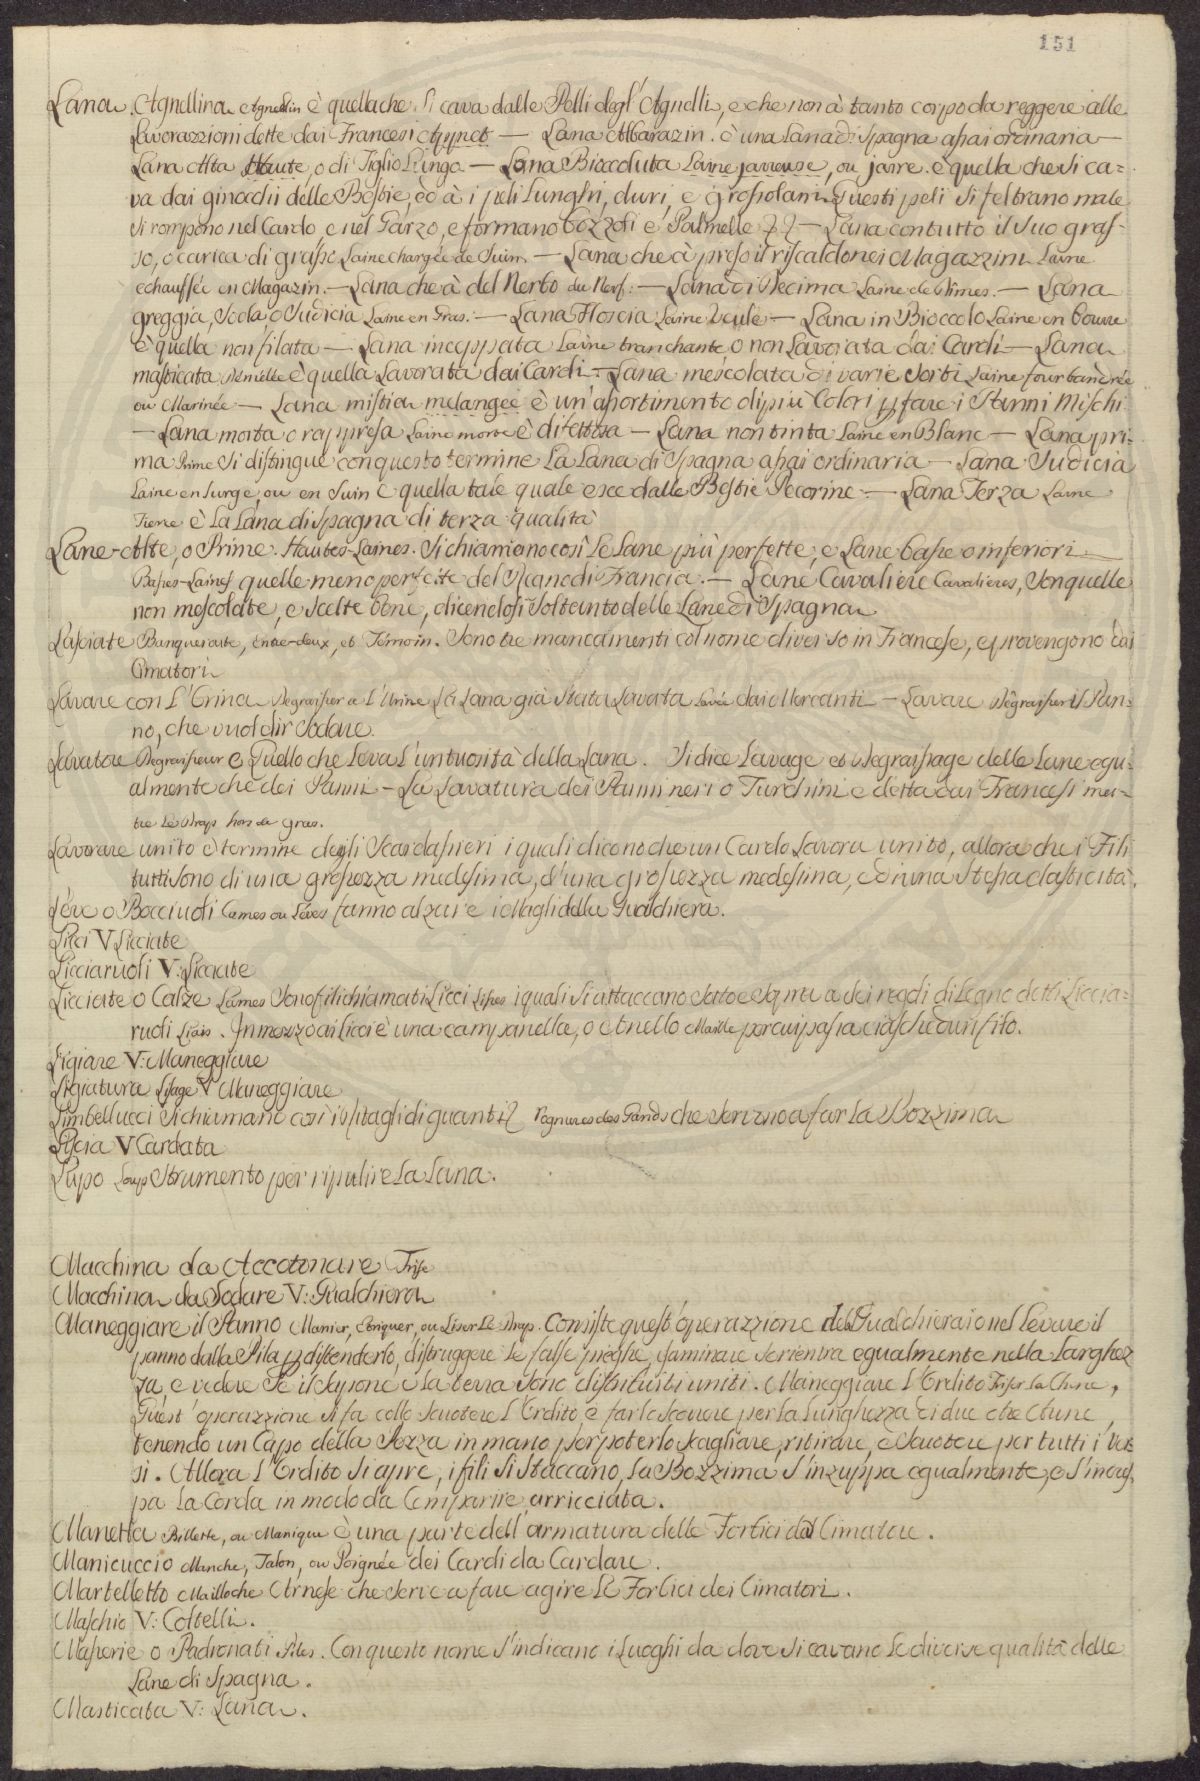 151
Lana. Agnellina Agnelin è quella che si cava dalle Pelli degl'Agnelli, e che non à tanto corpo da reggere alle
lavorazzioni dette dai Francesi — Lana Albarazin. è una Lana di Spagna assai ordinaria —
Lana Alta Haute, o di Tiglio Lungo — Lana Bioccoluta Laine jarreuse, ou jarre. è quella che si ca=
va dai ginocchi delle Bestie, ed à i peli Lunghi, duri, e grossolani. Questi peli si feltrano male
si rompono nel Cardo, e nel Garzo, e formano Bozzoli e Palmelle — Lana con tutto il suo gras-
so, o carica di grasso Laine chargée de Suin. — Lana che à preso il riscaldo nei Magazzini Laine
échauffée en Magazin. — Lana che à del Nerbo du Nerf: — Lana di Decima Laine de Dîmes. — Lana
greggia, Soda, o Sudicia Laine en Gras. — Lana Floscia Laine Veule — Lana in Bioccolo Laine en bourre
è quella non filata — Lana inceppata Laine tranchante, o non Lavorata dai Cardi — Lana
masticata Démêlée è quella Lavorata dai Cardi — Lana mescolata di varie sorti Laine fourbandrée
ou Marinée — Lana mistia melangée è un'assortimento di più Colori p fare i Panni Mischi
— Lana morta o rappresa Laine morte è difettosa — Lana non tinta Laine en Blanc — Lana pri-
ma Prime si distingue con questo termine La Lana di Spagna assai ordinaria — Lana Sudicia
Laine en Surge, ou en Suin è quella tale quale esce dalle Bestie Pecorine — Lana Terza Laine
Tierce è La Lana di Spagna di terza qualità
Lane-Alte, o Prime. Hautes-Laines. Si chiamano così Le Lane più perfette, e Lane basse o inferiori
Basses-Laines quelle meno perfette del Regno di Francia. — Lane Cavaliere Cavalieres, son quelle
non mescolate, e scelte bene, dicendosi soltanto delle Lane di Spagna
Lasciate Banqueroute, Entre-deux, et Témoin. Sono tre mancamenti col nome diverso in Francese, e provengono dai
Cimatori
Lavare con L'Orina Degraisser a L'Urine La Lana già stata Lavata Lavée dai Mercanti — Lavare Dégraisser il Pan-
no, che vuol dir Sodare.
Lavatore Degraisseur è Quello che Leva L'untuosità della Lana. Si dice Lavage et Degraissage delle Lane egu-
almente che dei Panni — La Lavatura dei Panni neri o Turchini è detta dai Francesi met-
tre Le Drap hors de gras.
Lavorare unito è termine degli Scardassieri i quali dicono che un Cardo Lavora unito, allora che i Fili
tutti sono di una grossezza medesima, d'una grossezza medesima, e di una stessa elasticità.
Leve o Bocciuoli Cames ou Léves fanno alzare i Magli della Gualchiera.
Licci V Licciate
Licciaruoli V: Licciate
Licciate o Calze Lames Sono fili chiamati Licci Lisses i quali si attaccano sotto e sopra a dei regoli di Legno detti Liccia=
ruoli Liais. In mezzo ai Licci è una campanella, o Anello Maille per cui passa ciaschedun filo.
Ligiare V: Maneggiare
Ligiatura Lisage V Maneggiare
Limbellucci Si chiamano così i ritagli di guanti Rognures des Gands che servono a far La Bozzima
Liscia V Cardata
Lupo Loup Strumento per ripulire La Lana.
Macchina da Accotonare Frise
Macchina da Sodare V: Gualchiera
Maneggiare il Panno Manier, Etriquer, ou Liser Le Drap. Consiste quest'operazzione del Gualchieraio nel Levare il
panno dalla Pila p distenderlo, distruggere Le false pieghe, esaminare se rientra egualmente nella Larghez
za, e vedere se il Sapone e La terra sono distribuiti uniti. Maneggiare L'Ordito Friser La Chaine,
Quest'operazzione si fa collo scuotere L'Ordito, e farlo scorrere per La Lunghezza di due Aune,
tenendo un Capo della Pezza in mano per poterlo scagliare, ritirare, e scuotere per tutti i ver
si. Allora L'Ordito si apre, i fili si staccano, La Bozzima s'inzuppa egualmente, e s'incres
pa La Corda in modo da Comparire arricciata.
Manetta Billette, ou Manique è una parte dell'armatura delle Forbici dal Cimatore.
Manicuccio Manche, Talon, ou Poignée dei Cardi da Cardare.
Martelletto Mailloche Arnese che serve a fare agire Le Forbici dei Cimatori.
Maschio V: Coltelli.
Masserie o Padronati Piles. Con questo nome s'indicano i Luoghi da dove si cavano Le diverse qualità delle
Lane di Spagna.
Masticata V: Lana.